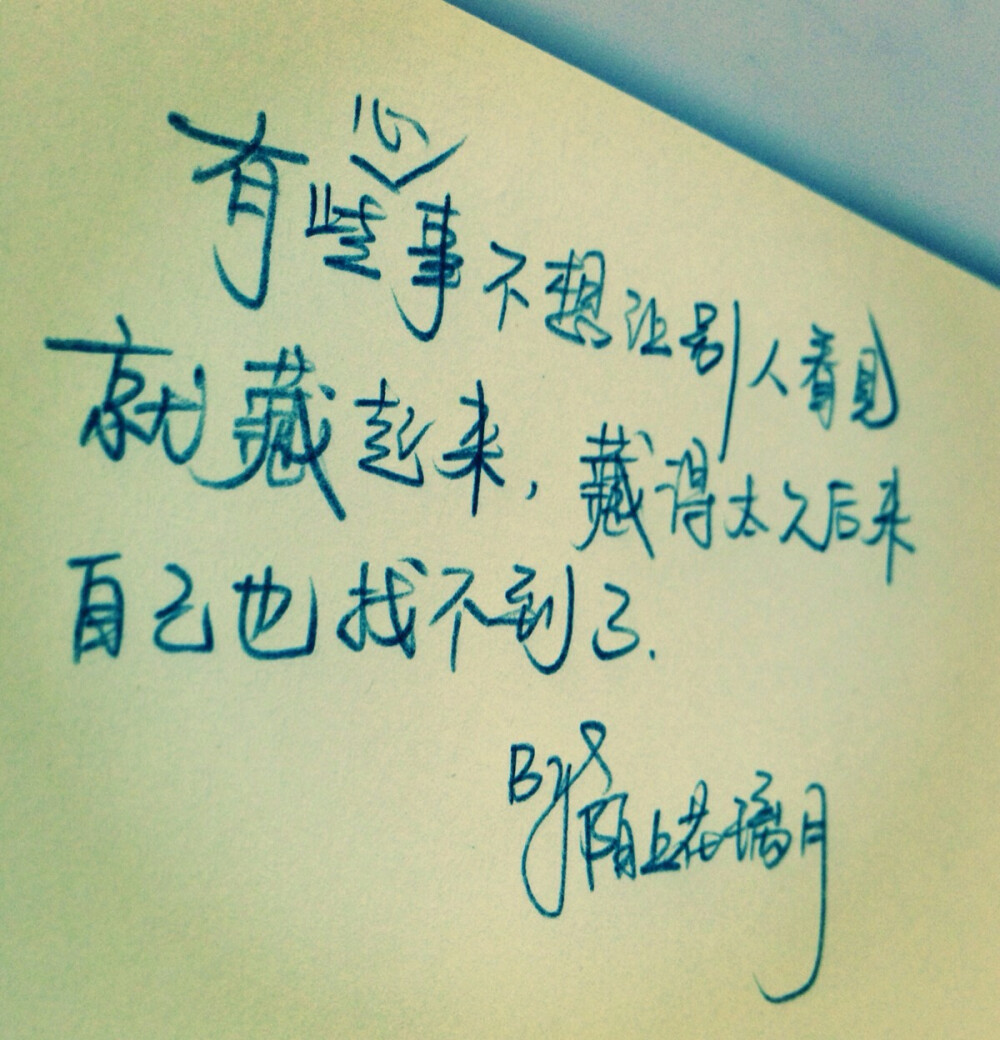 有些心事不想让别人看见
就藏起来，藏得太久后来
自己也找不到了.
By 陌上花璃月